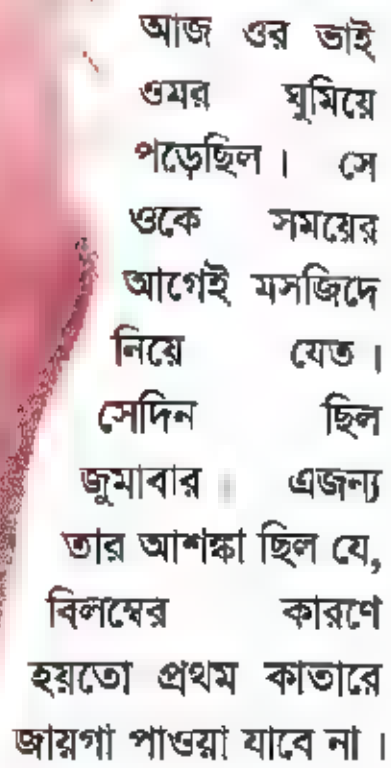 আজ ওর ভাই
ওমর ঘুমিয়ে
পড়েছিল। সে
ওকে সময়ের
আগেই মসজিদে
নিয়ে যেত।
সেদিন ছিল
জুমাবার। এজন্য
তার আশঙ্কা ছিল যে,
বিলম্বের কারণে
হয়তো প্রথম কাতারে
জায়গা পাওয়া যাবে না।